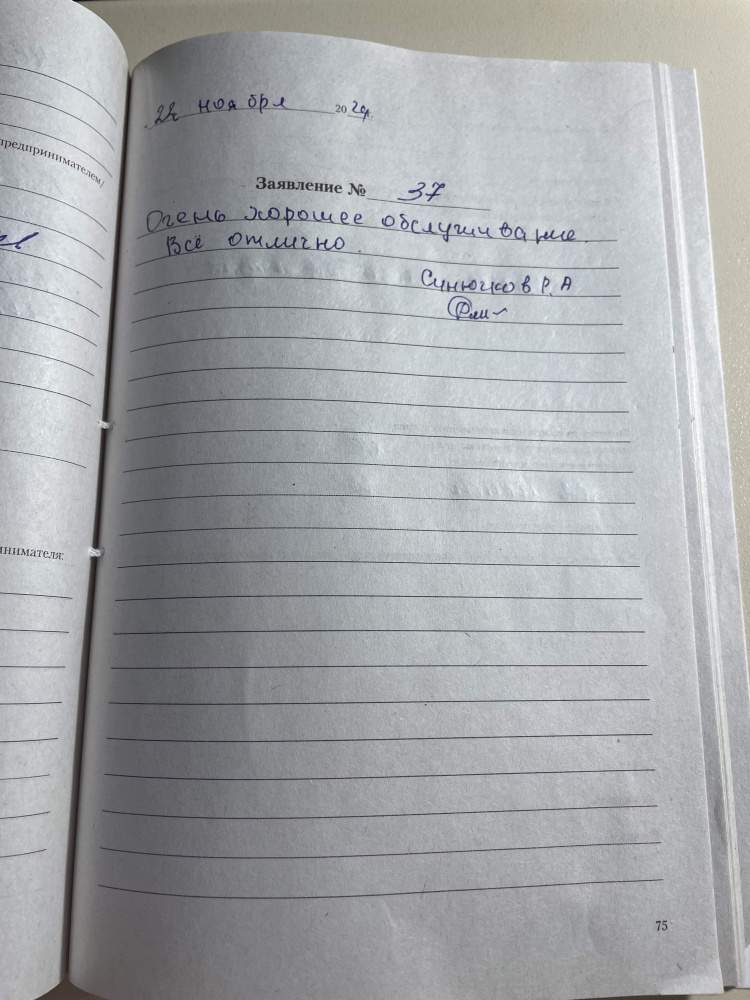 предпринимателем/
22 ноября 2024.
Заявление № 37
Очень хорошее обслуживание.
Всё отлично.
Р.А
инимателя:
75